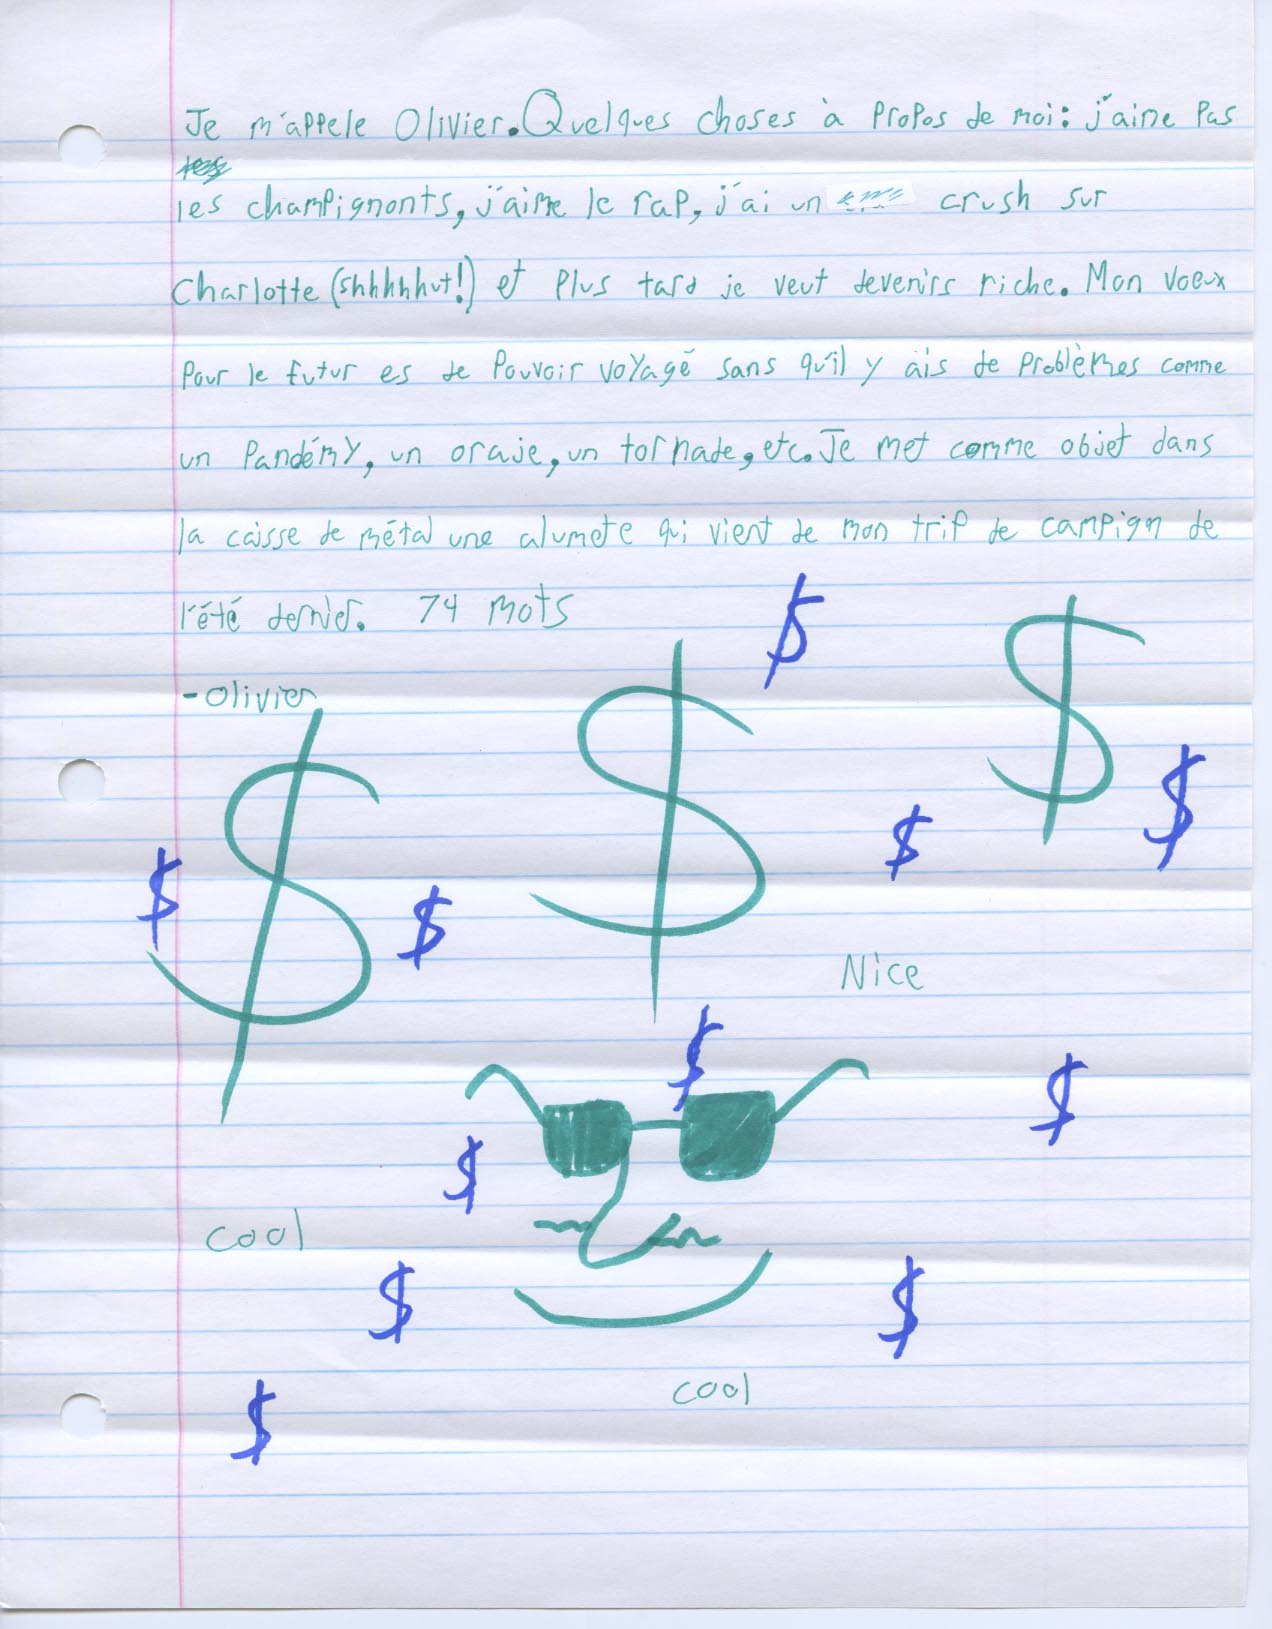 Je m'appele Olivier. Quelques choses à propos de moi: j'aime pas
les champignonts, j'aime le rap, j'ai un crush sur
Charlotte (shhhhhut!) et plus tard je veut devenirs riche. Mon voeux
pour le futur es de pouvoir voyagé sans qu'il y ais de problèmes comme
un pandémy, un oraje, un tornade, etc. Je met comme objet dans
la caisse de métal une alumete qui vient de mon trip de campign de
l'été dernier. 74 mots
-Olivier
$ $ $ $ $ $ $
$ $
Nice
$ $
$
cool
$ $
cool
$